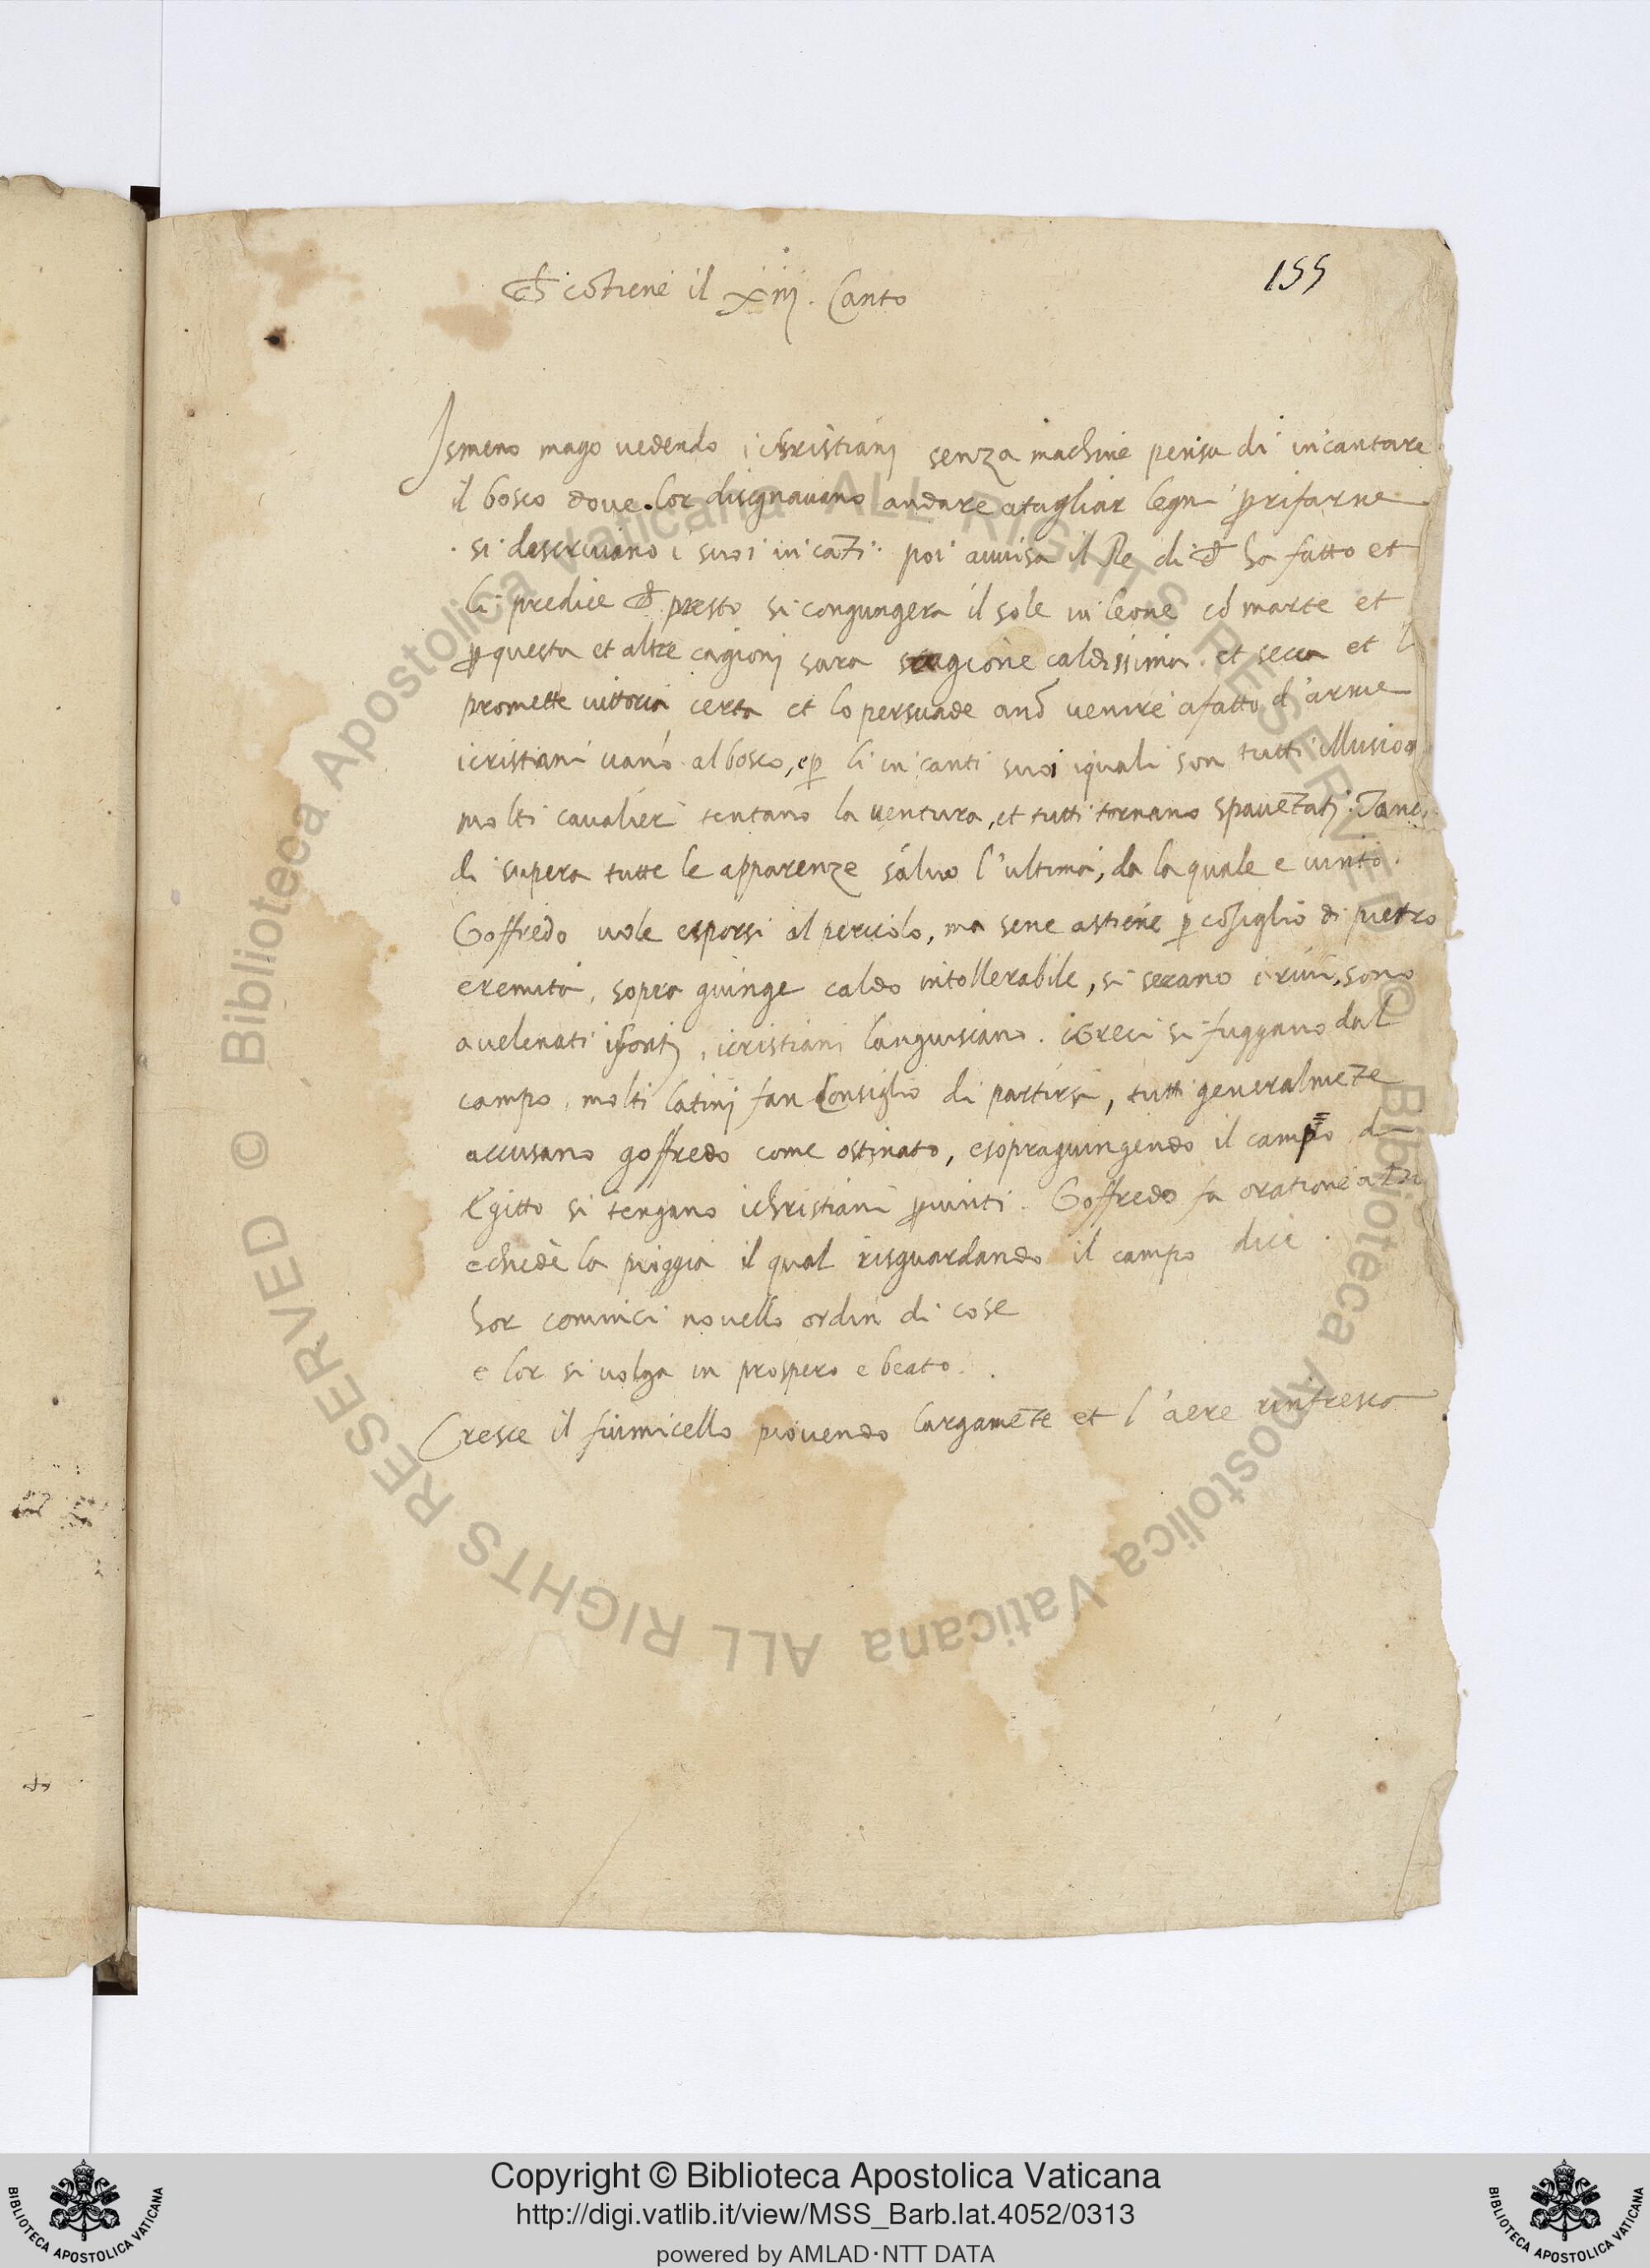 155
ch̄ cōtiene il xiij. Canto
Ismeno mago uedendo i christianj senza machine pensa di incantare
il bosco doue lor disegnauano andare a tagliar legni ꝑ rifarne
si descriuano i suoi incāti. poi auuisa il Re di ch̄ ha fatto et
li predice ch̄ presto si congiungera il sole in leone cō marte et
ꝑ questa et altre cagionj sara stagione caldissima et secca et li
promette uittoria certa et lo persuade a nō uenire a fatto d'arme
i cristiani uano al bosco, e ꝑ li incanti suoi i quali son tutti illusion
molti cavalieri tentano la uentura, et tutti tornano spauētatj. Tancre
di supera tutte le apparenze saluo l'ultima, da la quale e uinto.
Goffredo uole esporsi al pericolo, ma sene astiene ꝑ cōsiglio di pietro
eremita, sopra giunge caldo intollerabile, si secano i riui, sono
auelenati i fontj, i cristiani languiscano. i Greci si fuggano dal
campo, molti latinj fan Consiglio di partirsi, tutti generalmēte
accusano goffredo come ostinato, e sopragiungendo il campo di
Egitto si tengano i christiani ꝑ uinti. Goffredo fa oratione a Dio
e chiede la pioggia il qual risguardando il campo dice.
hor cominci nouello ordin di cose
e lor si uolga in prospero e beato.
Cresce il fiumicello piouendo largamēte et l'aere rinfresca
ALL RIGHTS RESERVED © Biblioteca Apostolica Vaticana ALL RIGHTS RESERVED © Biblioteca Apostolica Vaticana
BIBLIOTECA APOSTOLICA VATICANA
Copyright © Biblioteca Apostolica Vaticana
http://digi.vatlib.it/view/MSS_Barb.lat.4052/0313
powered by AMLAD·NTT DATA
BIBLIOTECA APOSTOLICA VATICANA